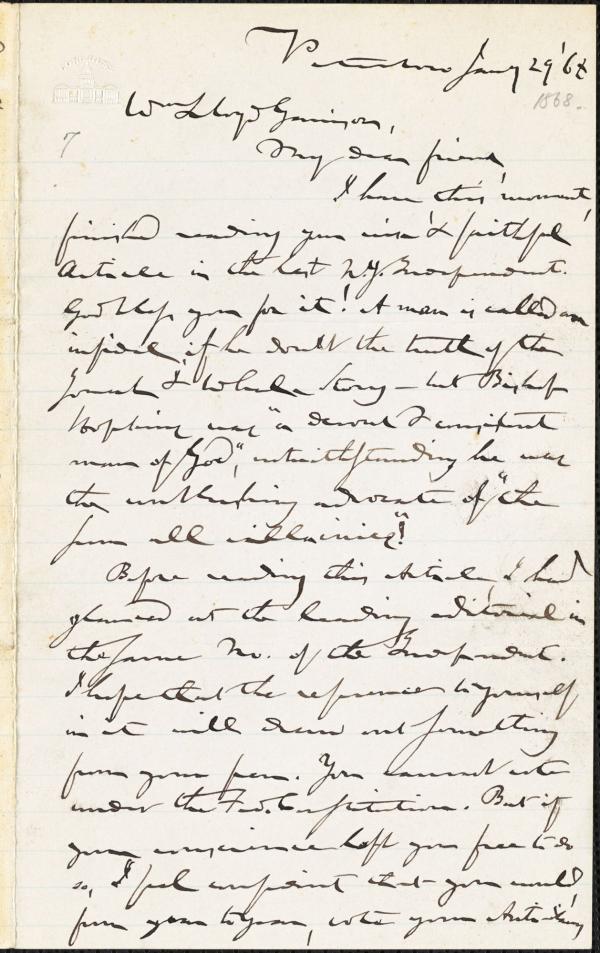 Peterboro Jany 29 '68
1868.
Wm Lloyd Garrison,
7
My dear friend,
I have this moment
finished reading your wise & faithful
Article in the last N.Y. Independent.
God bless you for it! A man is called an
infidel, if he doubt the truth of the
Jonah & Whale Story — but Bishop
Hopkins was "a devout & consistent
man of God", notwithstanding he was
the unblushing advocate of "the
sum all villainies"!
Before reading this Article, I had
glanced at the leading editorial in
the same No. of the Independent.
I hope that the reference to yourself
in it will draw out something
from your pen. You cannot vote
under the Fed. Constitution. But if
your conscience left you free to do
so, I feel confident that you would,
from year to year, vote your Anti-Slavery